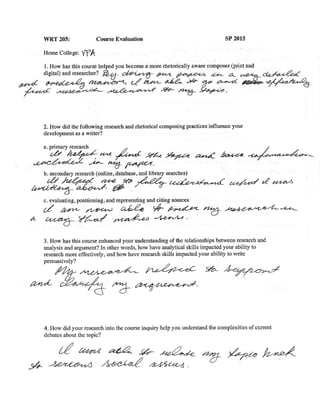 WRT 205: Course Evaluation SP 2013
Home College: VPA
1. How has this course helped you become a more rhetorically aware composer (print and
digital) and researcher? By doing our papers in a very detailed
and orderly manner, I am able to go and effectively
find research relevant to my topic.
2. How did the following research and rhetorical composing practices influence your
development as a writer?
a. primary research
It helped me find the topic and basic information
included in my paper.
b. secondary research (online, database, and library searches)
It helped me to fully understand what I was
writing about.
c. evaluating, positioning, and representing and citing sources
I am now able to order my research in
a way that makes sense.
3. How has this course enhanced your understanding of the relationships between research and
analysis and argument? In other words, how have analytical skills impacted your ability to
research more effectively, and how have research skills impacted your ability to write
persuasively?
My research helped to support
and clarify my argument.
4. How did your research into the course inquiry help you understand the complexities of current
debates about the topic?
I was able to relate my topic back
to serious social issues.